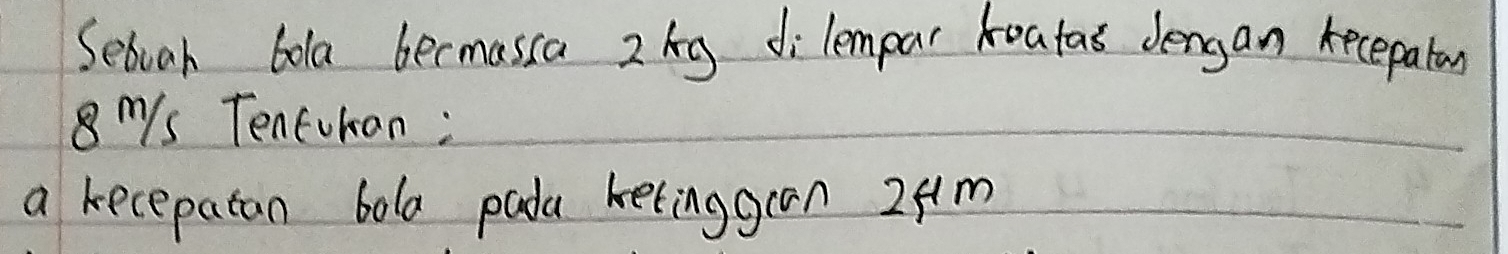 Sebuah bola bermassa 2 kg di lempar keatas dengan kecepatan
8 m/s Tentukan :
a kecepatan bola pada ketinggian m